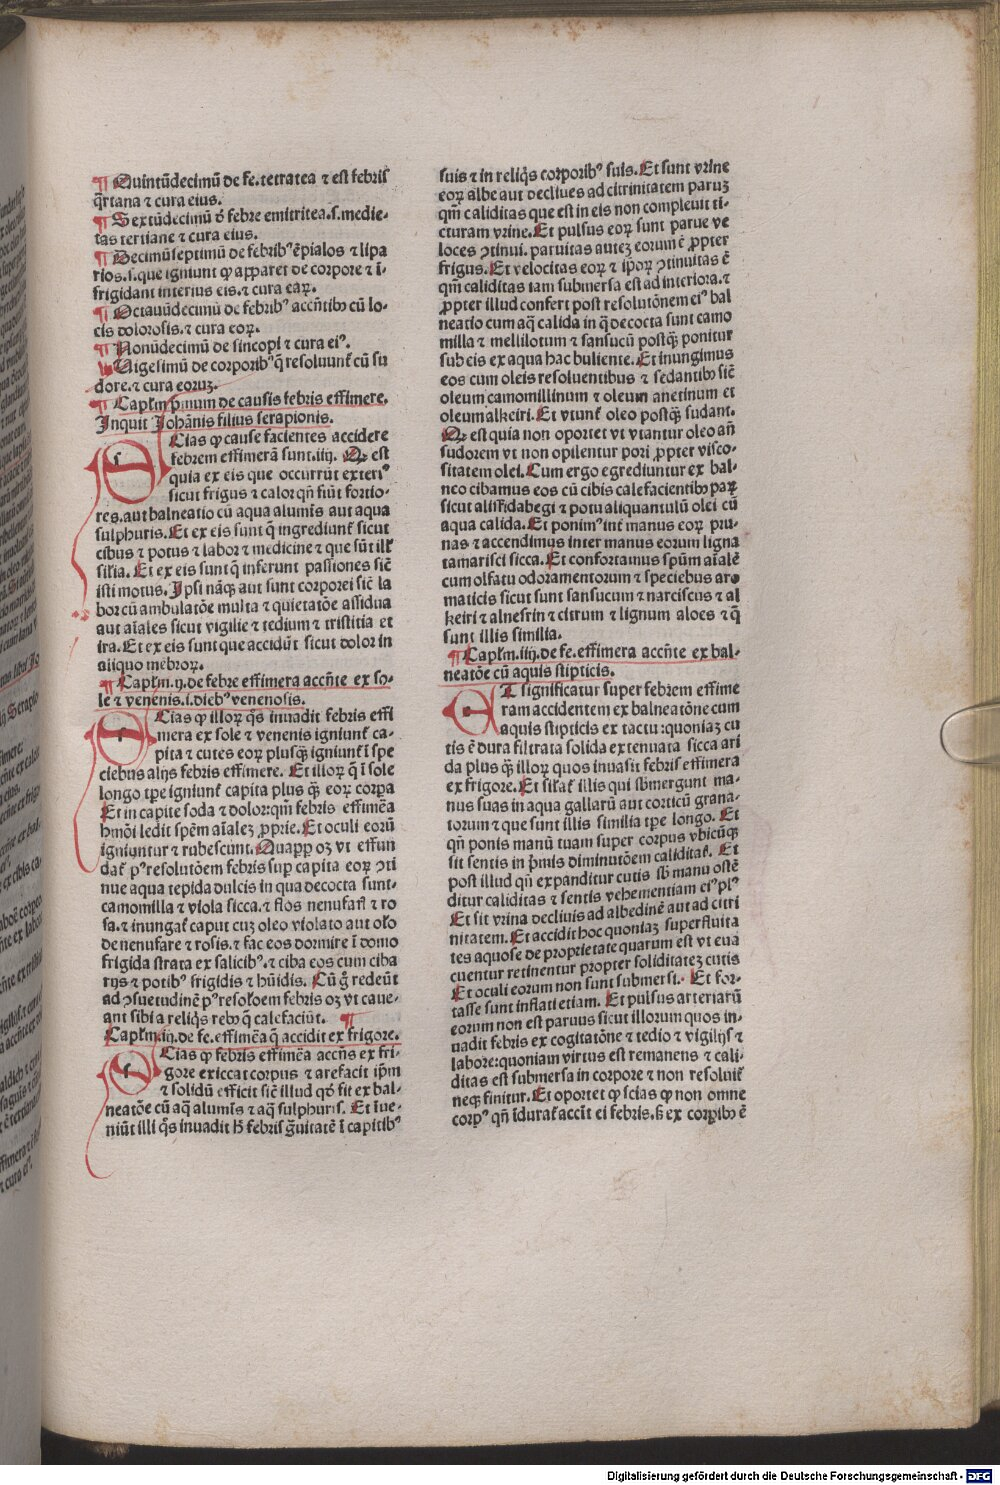 ¶ Quintũdecimũ de fe. tetratea ⁊ est febris
q̃rtana ⁊ cura eius.
¶ Sextũdecimũ ð febre emitritea .s. medie-
tas tertiane ⁊ cura eius.
¶ Decimũseptimũ de febribꝰ ẽpialos ⁊ lipa
rios .s. que igniunt ꝙ apparet de corpore ⁊ ĩ-
frigidant interius eis. ⁊ cura eaꝝ.
¶ Octauũdecimũ de febribꝰ accñtibꝫ cũ lo-
cis dolorosis. ⁊ cura eoꝝ.
¶ Nonũdecimũ de sincopi ⁊ cura eiꝰ.
Uigesimũ de corporibꝰ q̃ resoluunt̃ cũ su
dore. ⁊ cura eoruꝫ.
¶ Capl̃m p̃mum de causis febris effimere.
Inquit Johãnis filius serapionis.
Scias ꝙ cause facientes accidere
febrem effimerã sunt .iiij. Qꝫ est
quia ex eis que occurrũt exteriꝰ
sicut frigus ⁊ calor qñ fiũt fortio-
res. aut balneatio cũ aqua alumĩs aut aqua
sulphuris. Et ex eis sunt q̃ ingrediunt̃ sicut
cibus ⁊ potus ⁊ labor ⁊ medicine ⁊ que sũt ill̃
sil̃ia. Et ex eis sunt q̃ inferunt passiones sic̃
isti motus. Ipsi nãqꝫ aut sunt corporei sic̃ la
bor cũ ambulatõe multa ⁊ quietatõe assidua
aut aĩales sicut vigilie ⁊ tedium ⁊ tristitia et
ira. Et ex eis sunt que accidũt sicut dolor in
aliquo mẽbroꝝ.
¶ Capl̃m .ij. de febre effimera accñte ex so-
le ⁊ venenis .i. diebꝰ venenosis.
Scias ꝙ illoꝝ q̃s inuadit febris effi
mera ex sole ⁊ venenis igniunt̃ ca-
pita ⁊ cutes eoꝝ plusq̃ꝫ igniunt̃ ĩ spe
ciebus alijs febris effimere. Et illoꝝ q̃ ĩ sole
longo tp̃e igniunt̃ capita plus q̃ꝫ eoꝝ corꝑa
Et in capite soda ⁊ dolor: qm̃ febris effimẽa
hm̃õi ledit spẽm aĩaleꝫ ꝓprie. Et oculi eorũ
igniuntur ⁊ rubescunt. Quapp̃ oꝫ vt effun
dat̃ pꝰ resolutõem febris suꝑ capita eoꝝ ꝯti
nue aqua tepida dulcis in qua decocta sunt-
camomilla ⁊ viola sicca. ⁊ flos nenufari ⁊ ro
sa. ⁊ inungat̃ caput cuꝫ oleo violato aut ol̃o
de nenufare ⁊ rosis. ⁊ fac eos dormire ĩ domo
frigida strata ex salicibꝰ. ⁊ ciba eos cum ciba
rijs ⁊ potibꝰ frigidis ⁊ hũidis. Cũ g̃ redeũt
ad ꝯsuetudinẽ pꝰ resol̃oem febris oꝫ vt caue-
ant sibi a reliq̃s rebꝫ q̃ calefaciũt. ¶
Capl̃m .iij. de fe. effimẽa q̃ accidit ex frigore.
Scias ꝙ febris effimẽa accñs ex fri-
gore exiccat corpus ⁊ arefacit ip̃m
⁊ solidũ efficit sic̃ illud qð fit ex bal-
neatõe cũ aq̃ alumĩs ⁊ aq̃ sulphuris. Et ĩue-
niũt illi q̃s inuadit h̃ febris g̃uitatẽ ĩ capitibꝰ
suis ⁊ in reliq̃s corporibꝰ suis. Et sunt vrine
eoꝝ albe aut decliues ad citrinitatem paruꝫ
qm̃ caliditas que est in eis non compleuit ti-
cturam vrine. Et pulsus eoꝝ sunt parue ve
loces ꝯtinui. paruitas auteꝫ eorum ẽ ꝓpter
frigus. Et velocitas eoꝝ ⁊ ip̃oꝝ ꝯtinuitas ẽ
qm̃ caliditas iam submersa est ad interiora. ⁊
ꝓpter illud confert post resolutõnem eiꝰ bal
neatio cum aq̃ calida in q̃ decocta sunt camo
milla ⁊ mellilotum ⁊ sansucũ postq̃ꝫ ponitur
sub eis ex aqua hac buliente. Et inungimus
eos cum oleis resoluentibus ⁊ sedantibꝫ sic̃
oleum camomillinum ⁊ oleum anetinum et
oleum alkeiri. Et vtunt̃ oleo postq̃ꝫ sudant.
Qꝫ est quia non oportet vt vtantur oleo añ
sudorem vt non opilentur pori ꝓpter visco-
sitatem olei. Cum ergo egrediuntur ex bal-
neo cibamus eos cũ cibis calefacientibꝫ paꝝ
sicut alisfidabegi ⁊ potu aliquantulũ olei cũ
aqua calida. Et ponimꝰ int̃ manus eoꝝ pru-
nas ⁊ accendimus inter manus eorum ligna
tamarisci sicca. Et confortamus spũm aĩalẽ
cum olfatu odoramentorum ⁊ speciebus aro
maticis sicut sunt sansucum ⁊ narciscus ⁊ al
keiri ⁊ alnesrin ⁊ citrum ⁊ lignum aloes ⁊ q̃
sunt illis similia.
¶ Capl̃m .iiij. de fe. effimera accñte ex bal-
neatõe cũ aquis stipticis.
ET significatur super febrem effime
ram accidentem ex balneatõne cum
aquis stipticis ex tactu: quoniaꝫ cu
tis ẽ dura filtrata solida extenuata sicca ari
da plus q̃ꝫ illoꝝ quos inuasit febris effimera
ex frigore. Et silat̃ illis qui sb̃mergunt ma-
nus suas in aqua gallarũ aut corticũ grana-
torum ⁊ que sunt illis similia tp̃e longo. Et
qñ ponis manũ tuam super corpus vbicũqꝫ
sit sentis in p̃mis diminutõem caliditat̃. Et
post illud qñ expanditur cutis sb̃ manu ostẽ
ditur caliditas ⁊ sentis vehementiam eiꝰ plꝰ
Et sit vrina decliuis ad albedinẽ aut ad citri
nitatem. Et accidit hoc quoniaꝫ superfluita
tes aquose de proprietate quarum est vt eua
cuentur retinentur propter soliditateꝫ cutis
Et oculi eorum non sunt submersi. Et for-
tasse sunt inflati etiam. Et pulsus arteriarũ
eorum non est paruus sicut illorum quos in-
uadit febris ex cogitatõne ⁊ tedio ⁊ vigilijs ⁊
labore: quoniam virtus est remanens ⁊ cali-
ditas est submersa in corpore ⁊ non resoluit̃
neqꝫ finitur. Et oportet ꝙ scias ꝙ non omne
corpꝰ qñ ĩdurat̃ accĩt ei febris. sꝫ ex corꝑibꝫ ẽ
Digitalisierung gefördert durch die Deutsche Forschungsgemeinschaft - DFG